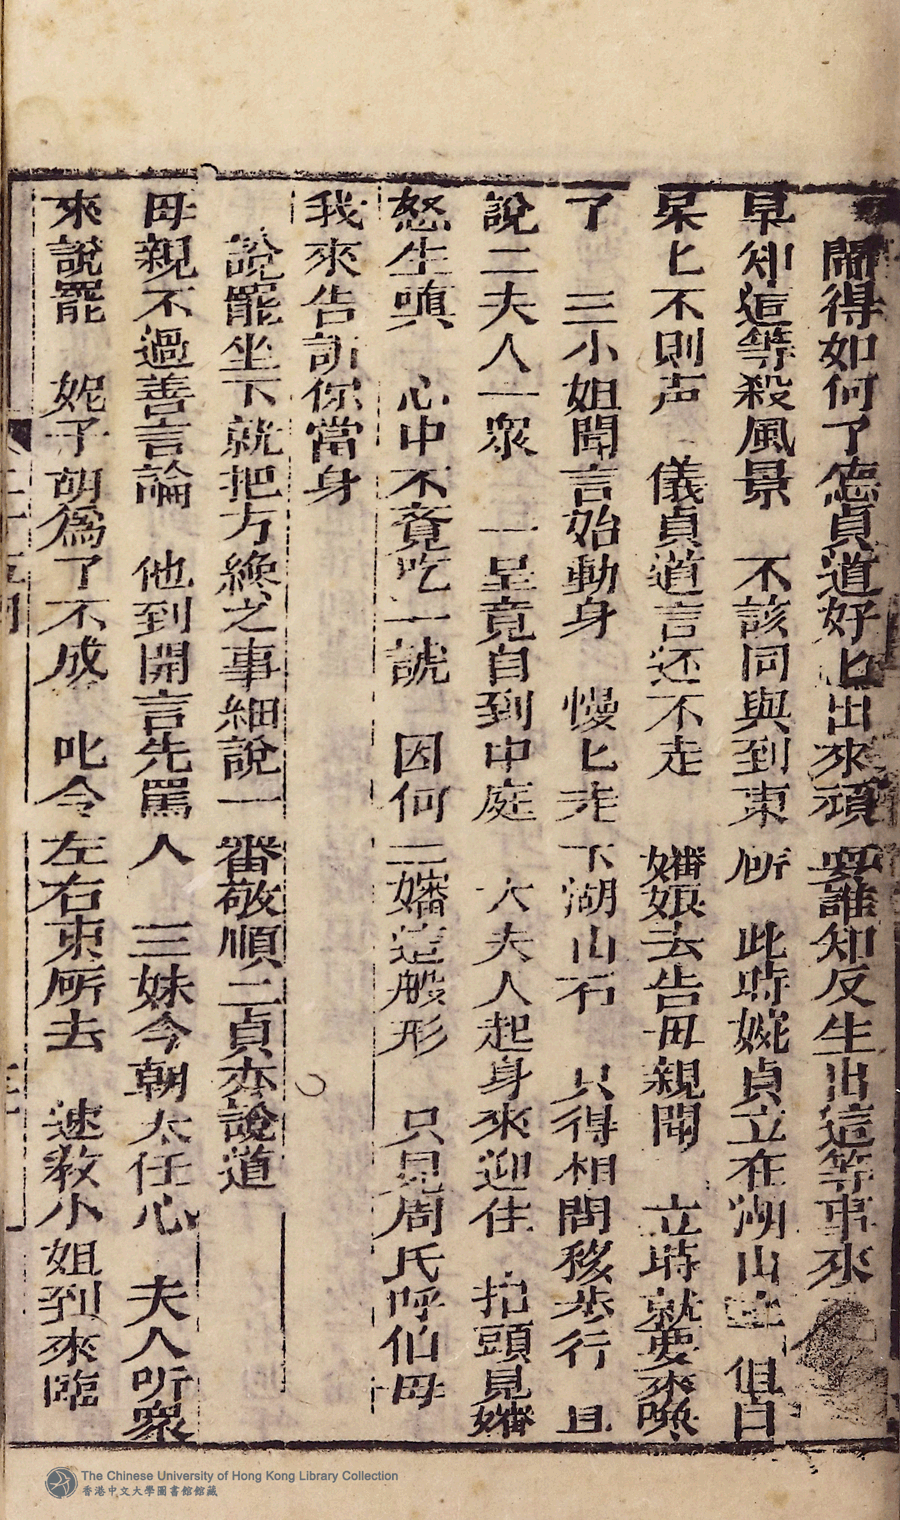 鬧得如何了德貞道好匕出來頑耍誰知反生出這等事來
早知這等殺風景 不該同與到東所 此時婉貞立在湖山 但自
呆匕不則声 儀貞道言还不走 嬸娘去告母親聞 立時就要來喚
了 三小姐聞言始動身 慢匕走下湖山石 只得相問移步行 且
說二夫人一衆 一呈竟自到中庭 大夫人起身來迎住 抬頭見嬸
怒生嗔 心中不竟吃一諕 因何二嬸這般形 只見周氏呼伯母
我來告訴你當身
說罷坐下就把方纔之事細說一番敬順二貞亦說道
母親不過善言論 他到開言先罵人 三妹今朝太任心 夫人听衆
來說罷 妮子胡爲了不成 叱令左右東所去 速教小姐到來臨
The Chinese University of Hong Kong Library Collection
香港中文大學圖書館館藏